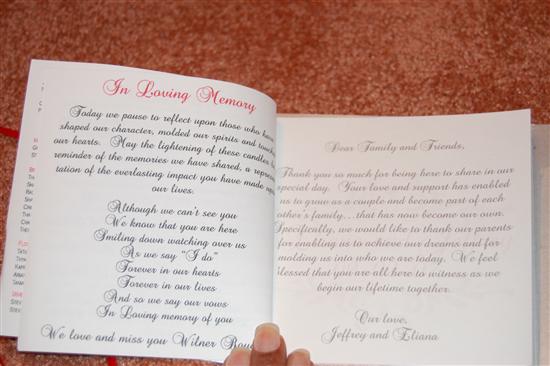 In Loving Memory
Today we pause to reflect upon those who have
shaped our character, molded our spirits and touched
our hearts. May the lightening of these candles, be
reminder of the memories we have shared, a represen-
tation of the everlasting impact you have made upon
our lives.
Although we can't see you
We know that you are here
Smiling down watching over us
As we say "I do"
Forever in our hearts
Forever in our lives
And so we say our vows
In Loving memory of you
We love and miss you Wilner
Dear Family and Friends,
Thank you so much for being here to share in our
special day. Your love and support has enabled
us to grow as a couple and become part of each
other's family...that has now become our own.
Specifically, we would like to thank our parents
for enabling us to achieve our dreams and for
molding us into who we are today. We feel
blessed that you are all here to witness as we
begin our lifetime together.
Our love,
Jeffrey and Eliana